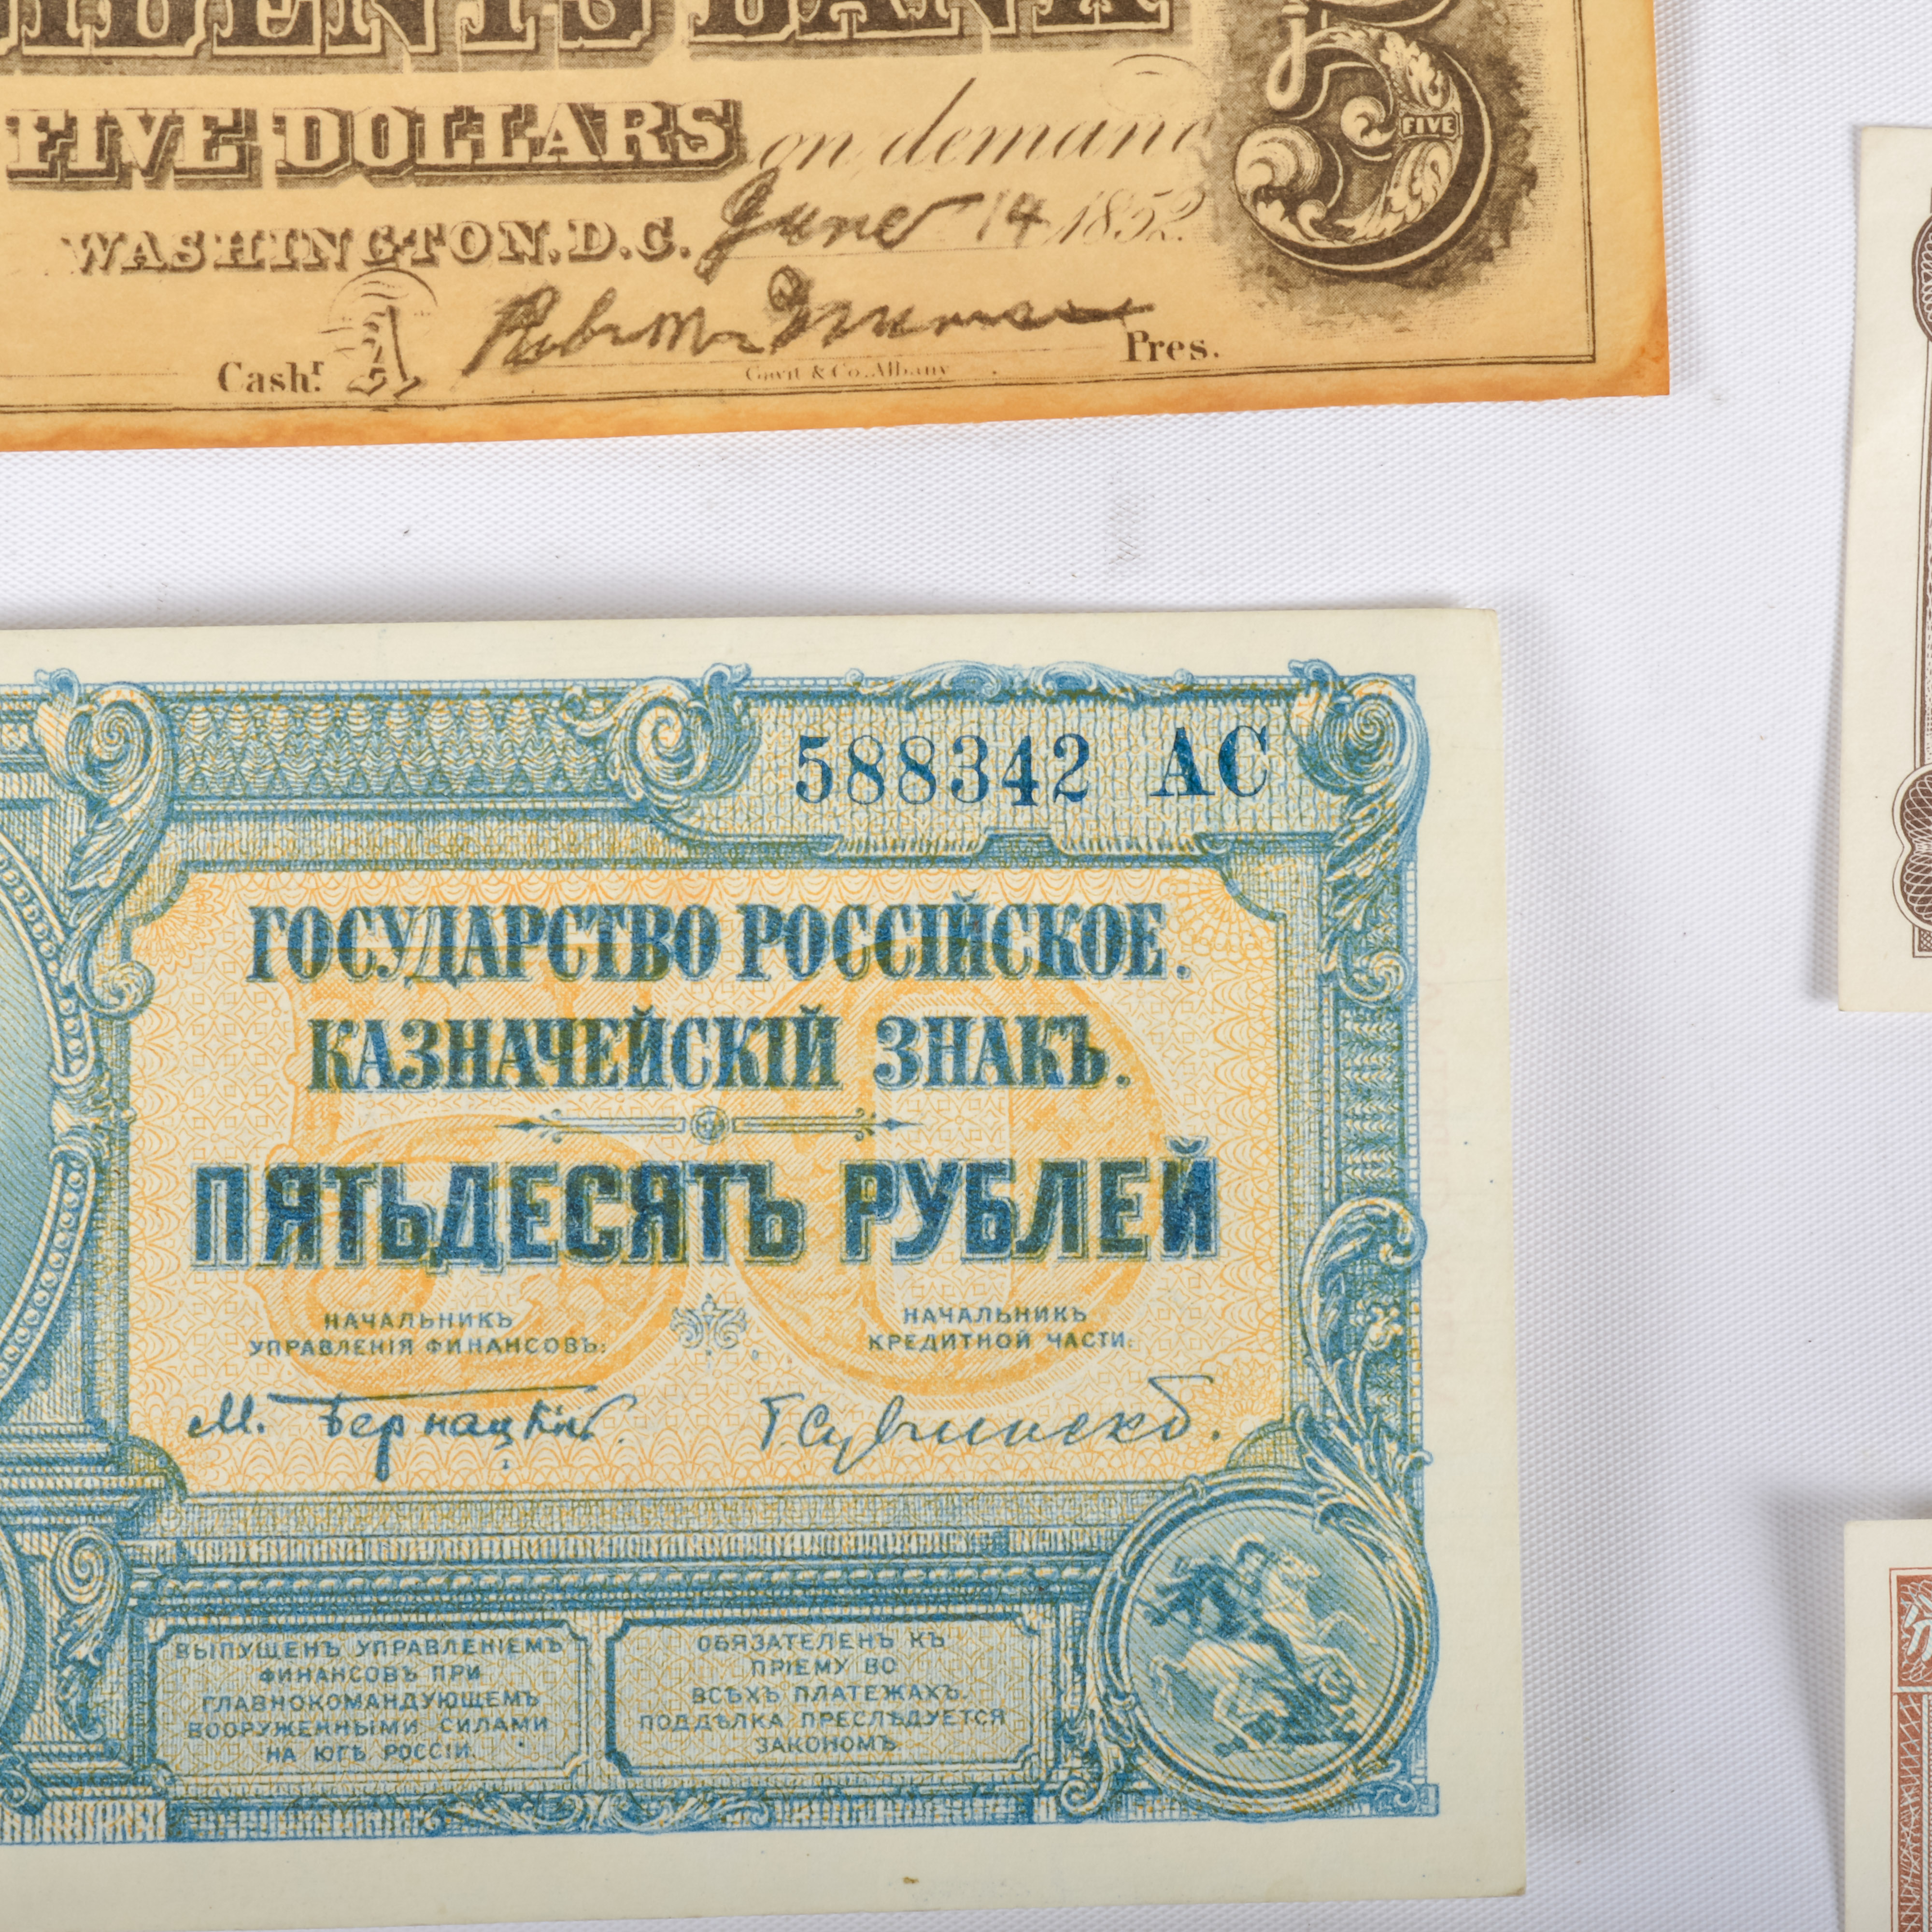 FIVE DOLLARS on demand
FIVE
WASHINGTON, D.C. June 14 1852.
Cash.r A Pres.
Gavit & Co. Albany
588342 АС
ГОСУДАРСТВО РОССІЙСКОЕ.
КАЗНАЧЕЙСКІЙ ЗНАКЪ.
ПЯТЬДЕСЯТЪ РУБЛЕЙ
НАЧАЛЬНИКЪ
УПРАВЛЕНІЯ ФИНАНСОВЪ:
НАЧАЛЬНИКЪ
КРЕДИТНОЙ ЧАСТИ:
М. Бернацкій.
ВЫПУЩЕНЪ УПРАВЛЕНІЕМЪ
ФИНАНСОВЪ ПРИ
ГЛАВНОКОМАНДУЮЩЕМЪ
ВООРУЖЕННЫМИ СИЛАМИ
НА ЮГѢ РОССІИ.
ОБЯЗАТЕЛЕНЪ КЪ
ПРІЕМУ ВО
ВСѢХЪ ПЛАТЕЖАХЪ.
ПОДДѢЛКА ПРЕСЛѢДУЕТСЯ
ЗАКОНОМЪ.